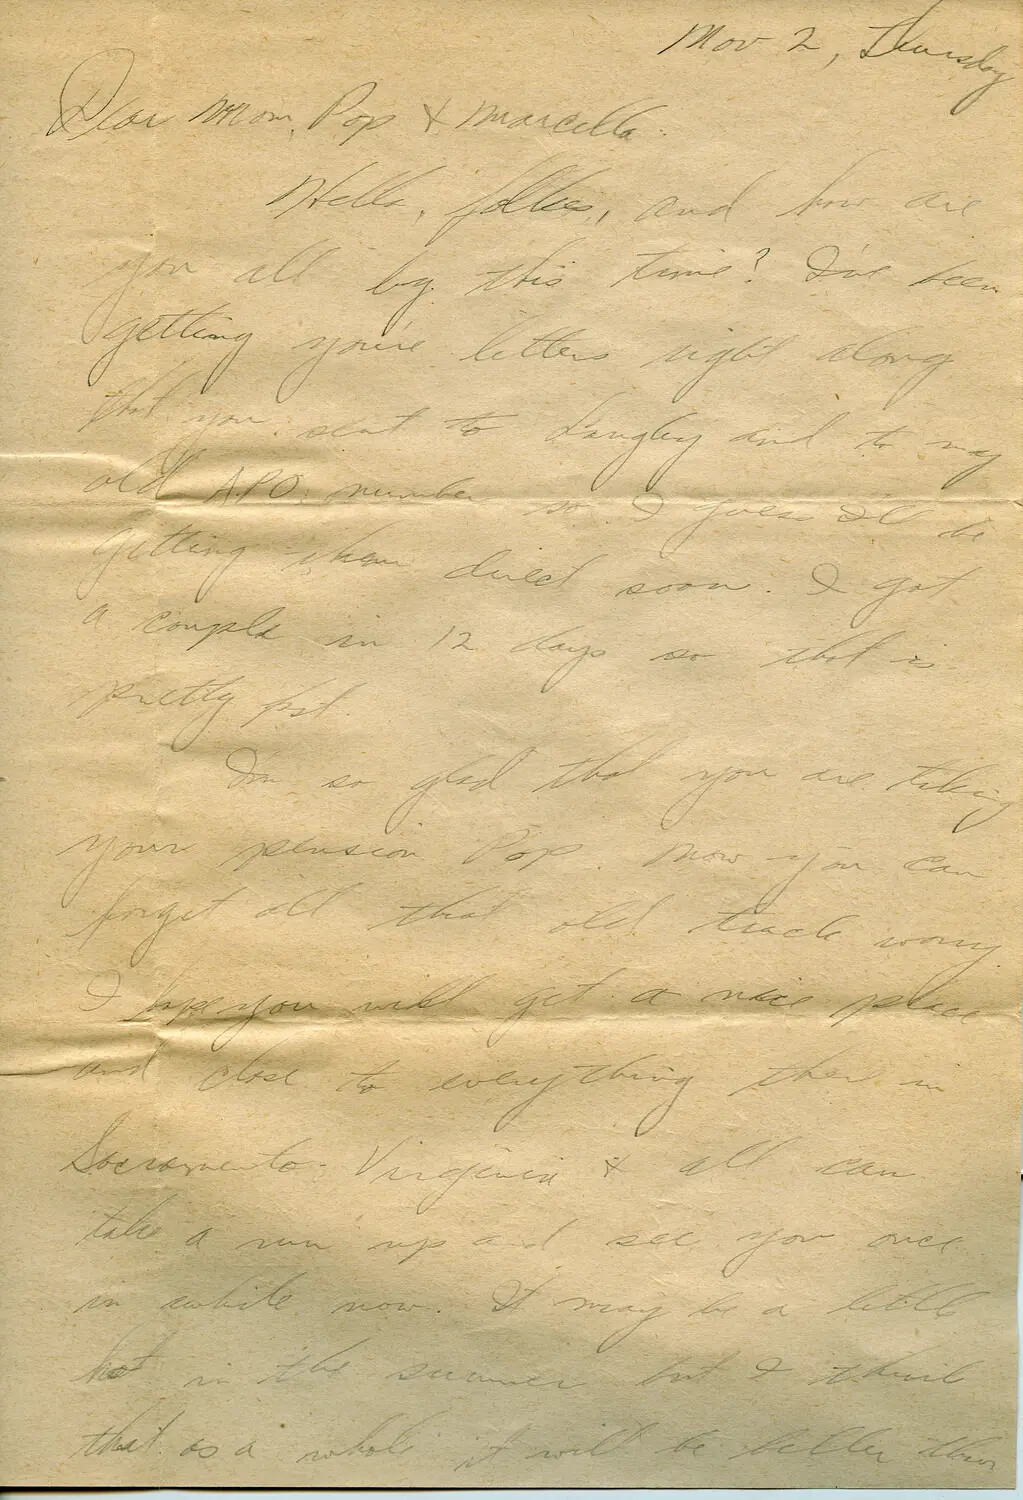 Nov 2, Thursday
Dear Mom, Pop & Marcella.
Hello, folkes, and how are
you all by this time? I've been
getting you're letters right along
that you sent to Langley and to my
old A.P.O. number so I guess I'll be
getting them direct soon. I got
a couple in 12 days so that is
pretty fast.
I'm so glad that you are taking
your pension Pop. Now you can
forget all that old track worry.
I hope you will get a nice place
and close to everything there in
Sacramento. Virginia & all can
take a run up and see you once
in awhile now. It may be a little
hot in the summer but I think
that as a whole it will be better than